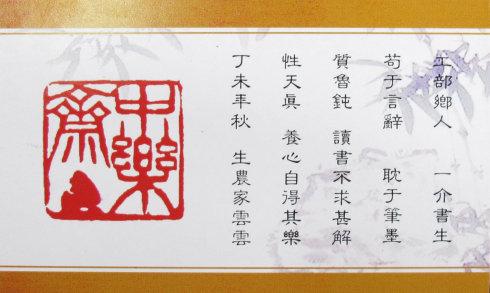 工部鄉人 一介書生
苟于言辭 耽于筆墨
質魯鈍 讀書不求甚解
性天真 養心自得其樂
丁未年秋 生農家雲雲
中樂齋